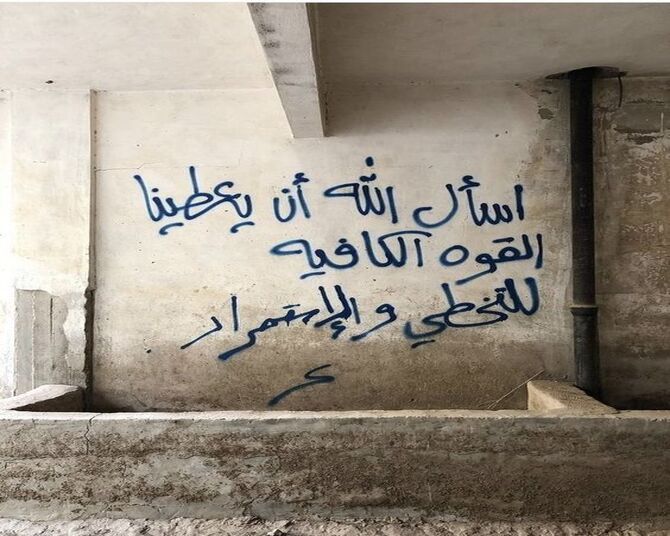 اسأل الله أن يعطينا
القوه الكافيه
للتخطي والإستمرار.